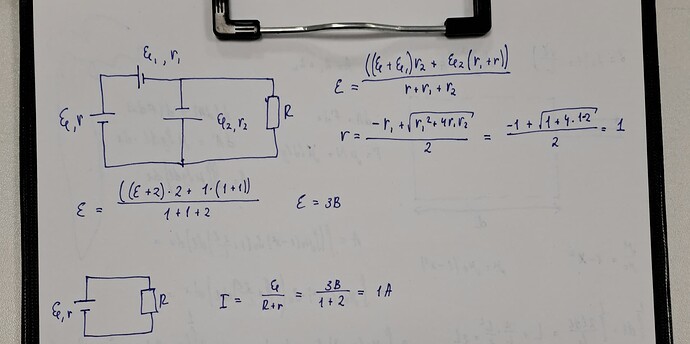 ℰ₁, r₁
ℰ, r
ℰ₂, r₂
R
ℰ = ((ℰ + ℰ₁)r₂ + ℰ₂(r₁+r)) / (r + r₁ + r₂)
r = (-r₁ + √(r₁² + 4r₁r₂)) / 2 = (-1 + √(1 + 4·1·2)) / 2 = 1
ℰ = ((ℰ+2)·2 + 1·(1+1)) / (1+1+2) ℰ = 3В
ℰ, r
R
I = ℰ / (R+r) = 3В / (1+2) = 1A